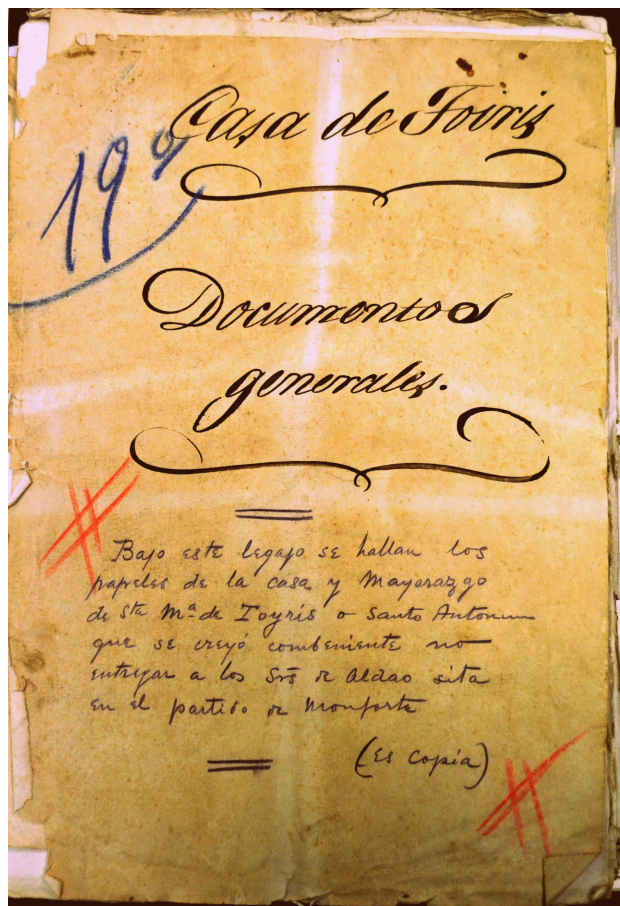 19º
Casa de Toiris
Documentos
generales.
Bajo este legajo se hallan los
papeles de la casa y Mayorazgo
de Sta Mª de Toyris o Santo Antonun
que se creyó combeniente no
entregar a los Srs de Aldao sita
en el partido de Monforte
(Es copia)